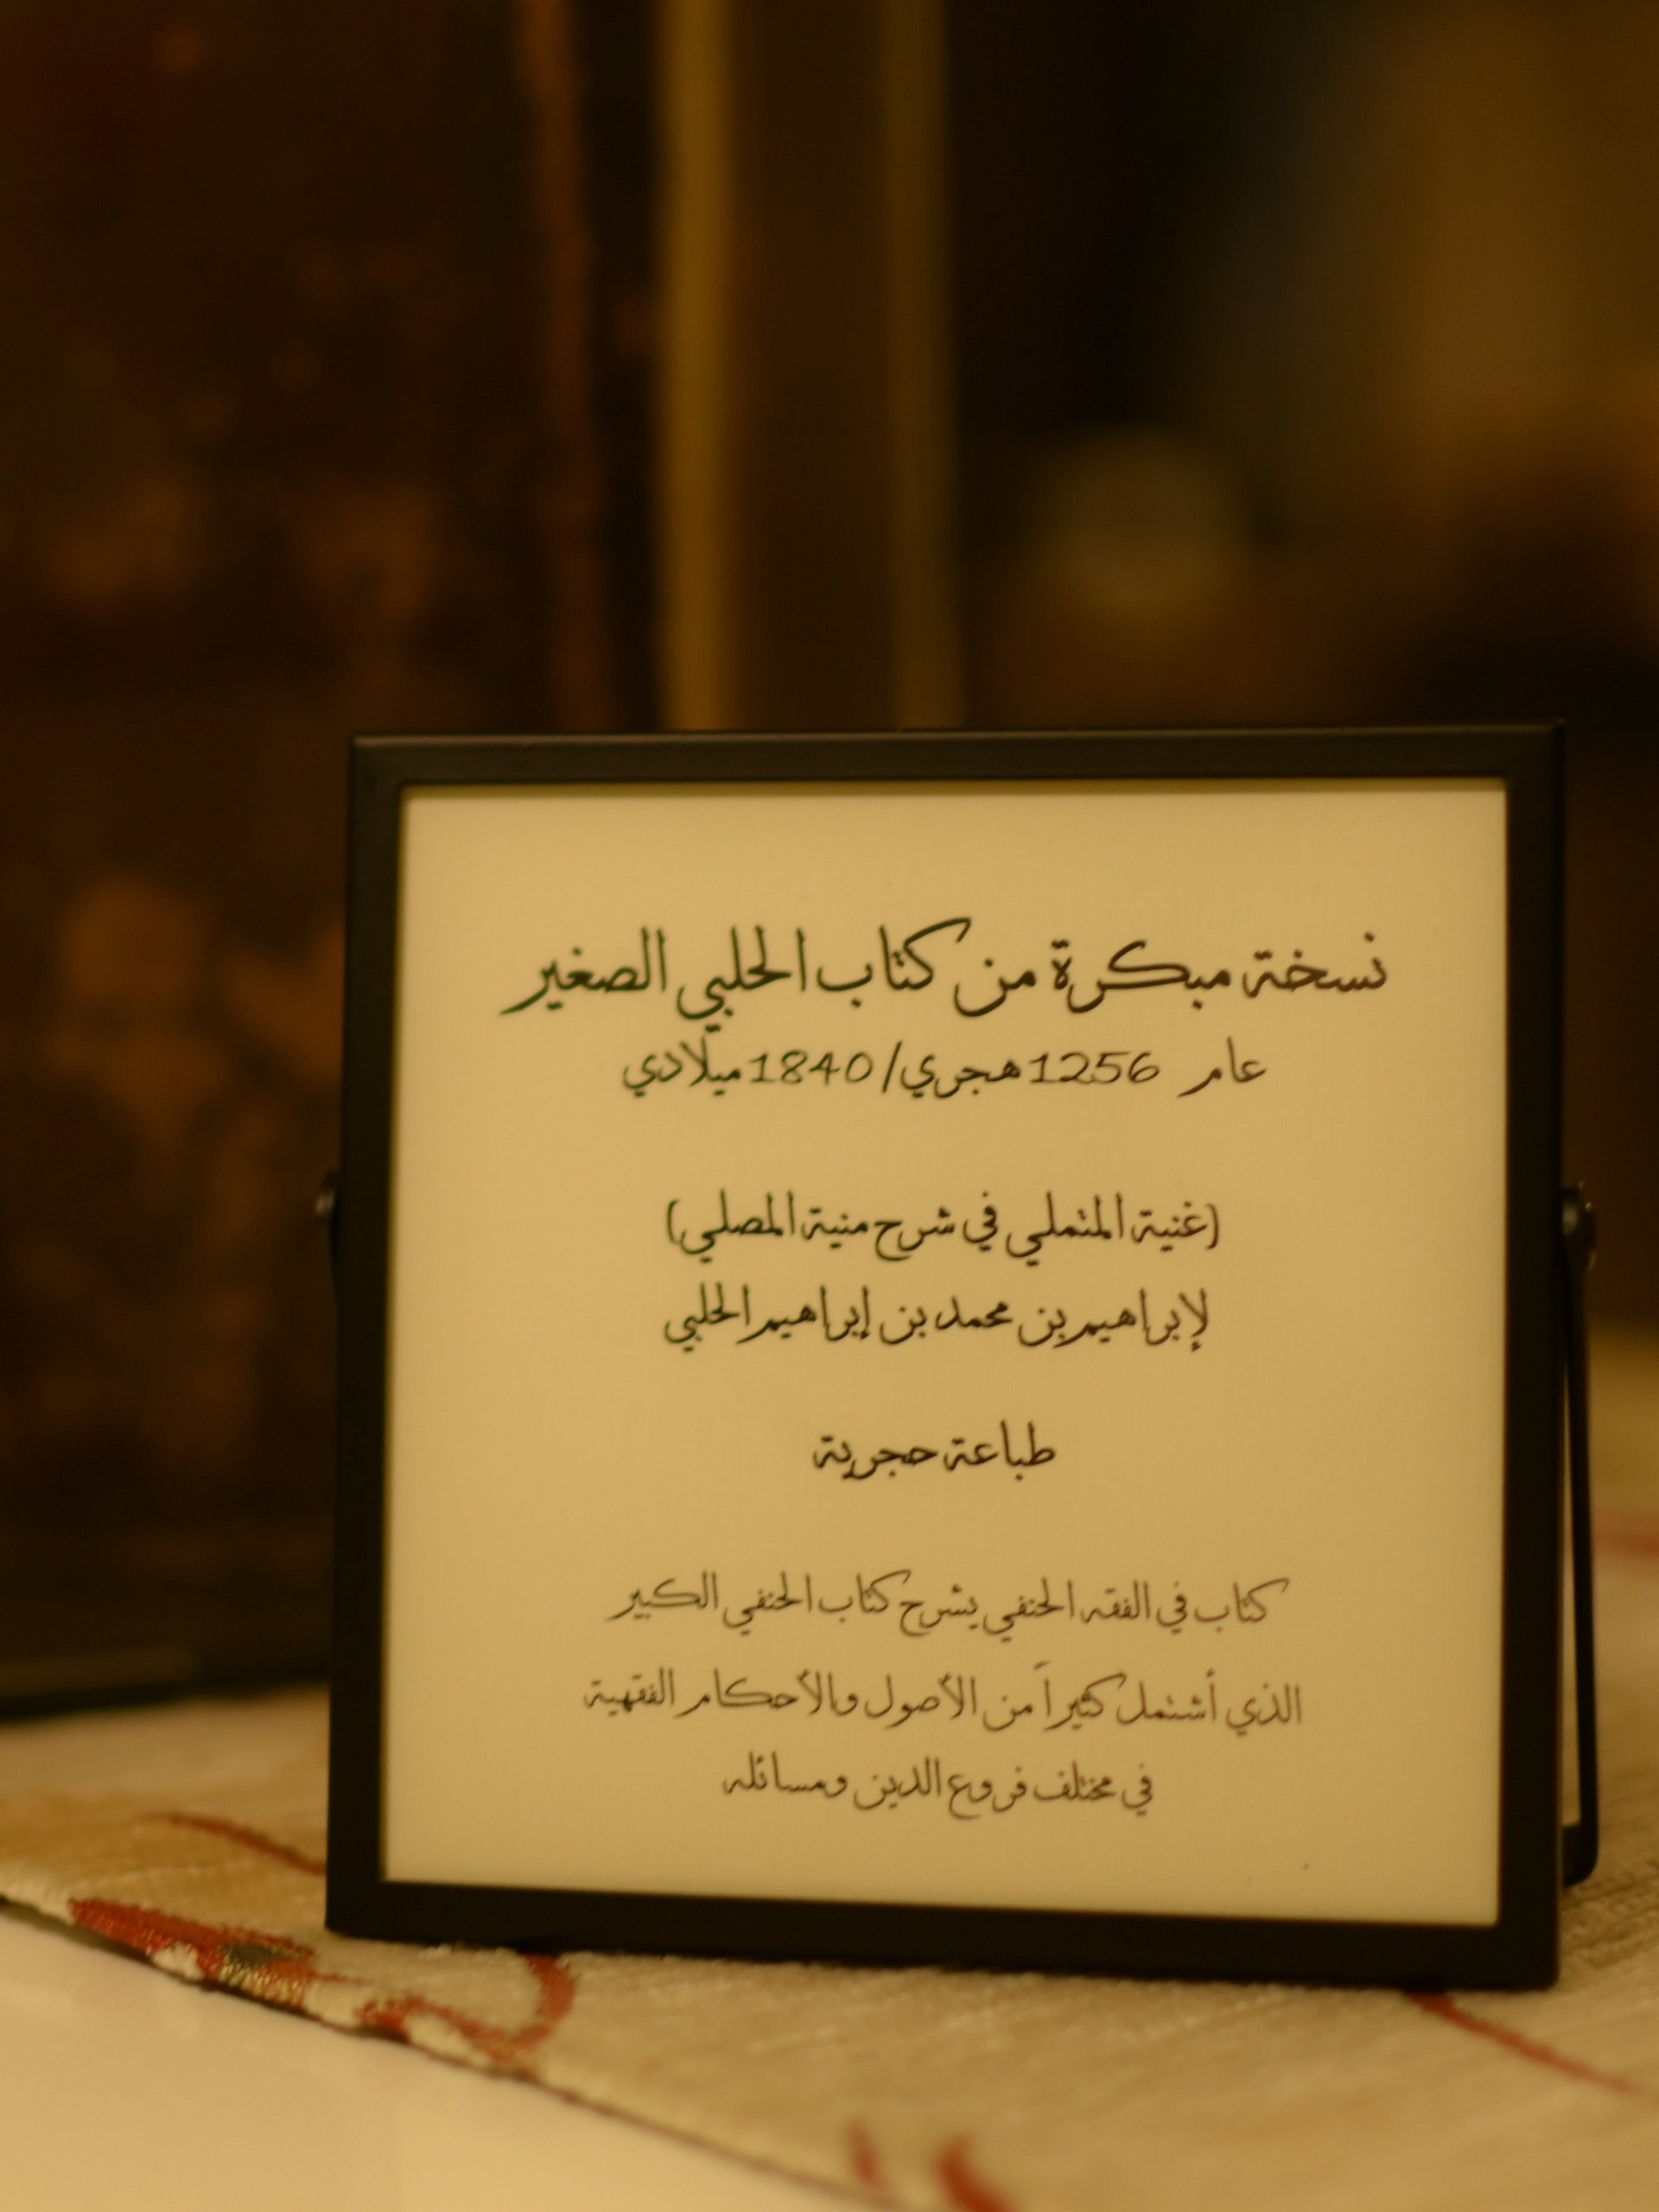 نسخة مبكرة من كتاب الحلبي الصغير
عام 1256 هجري/1840 ميلادي
(غنية المتملي في شرح منية المصلي)
لإبراهيم بن محمد بن إبراهيم الحلبي
طباعة حجرية
كتاب في الفقه الحنفي يشرح كتاب الحنفي الكبير
الذي أشتمل كثيراً من الأصول والأحكام الفقهية
في مختلف فروع الدين ومسائله